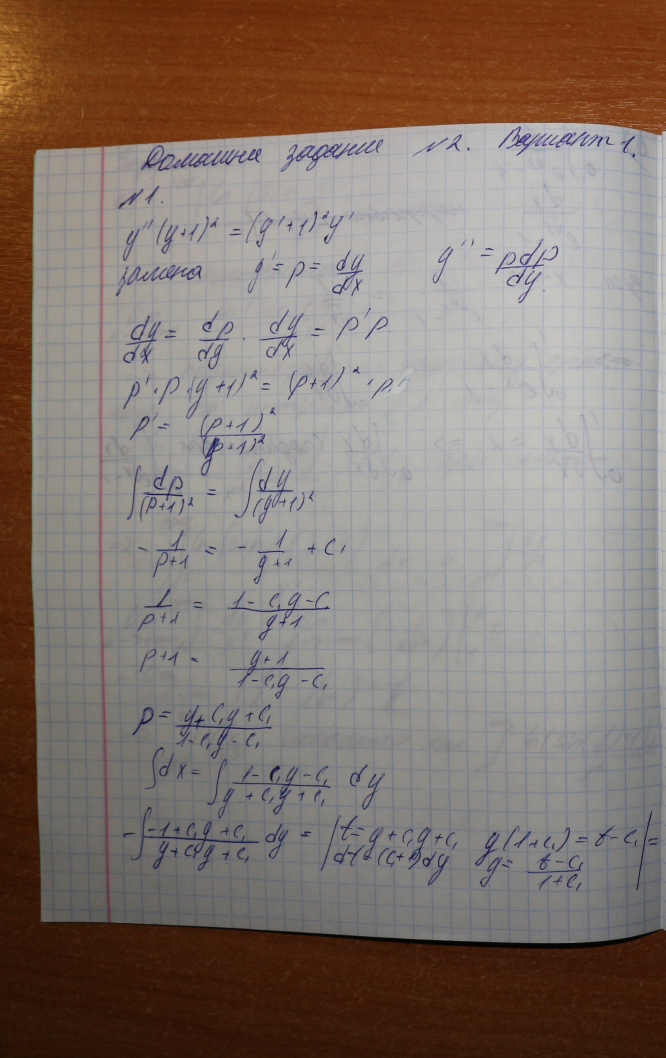 Домашнее задание №2. Вариант 1.
№1.
y''(y+1)² = (y'+1)²y'
замена y' = p = dy/dx y'' = pdp/dy
dy/dx = dp/dy · dy/dx = p'p
p'·p(y+1)² = (p+1)²·p
p' = (p+1)²/(y+1)²
∫dp/(p+1)² = ∫dy/(y+1)²
-1/(p+1) = -1/(y+1) + C₁
1/(p+1) = (1-C₁y-C₁)/(y+1)
p+1 = (y+1)/(1-C₁y-C₁)
p = (y+C₁y+C₁)/(1-C₁y-C₁)
∫dx = ∫(1-C₁y-C₁)/(y+C₁y+C₁) dy
-∫(-1+C₁y+C₁)/(y+C₁y+C₁) dy = |t=y+C₁y+C₁ y(1+C₁)=t-C₁| =
dt=(C₁+1)dy y=(t-C₁)/(1+C₁)